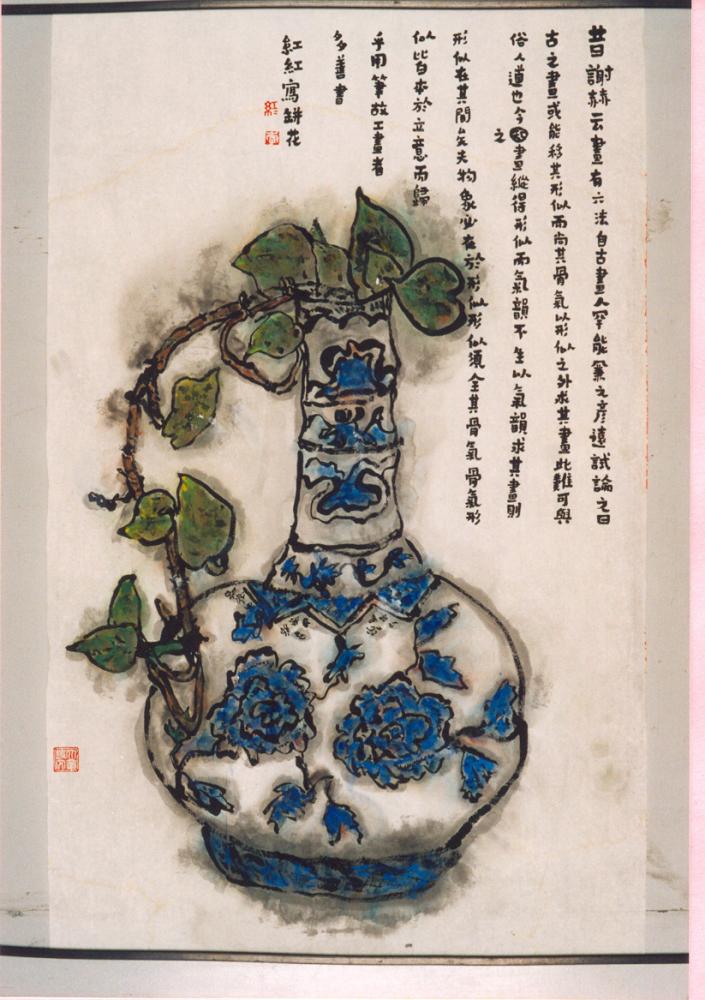 昔謝赫云畫有六法自古畫人罕能兼之彦遠試論之曰
古之畫或能移其形似而尚其骨氣以形似之外求其畫此難可與
俗人道也今之畫縱得形似而氣韻不生以氣韻求其畫則
形似在其間矣夫物象必在於形似形似須全其骨氣骨氣形
似皆本於立意而歸
乎用筆故工畫者
多善書
紅紅寫缾花